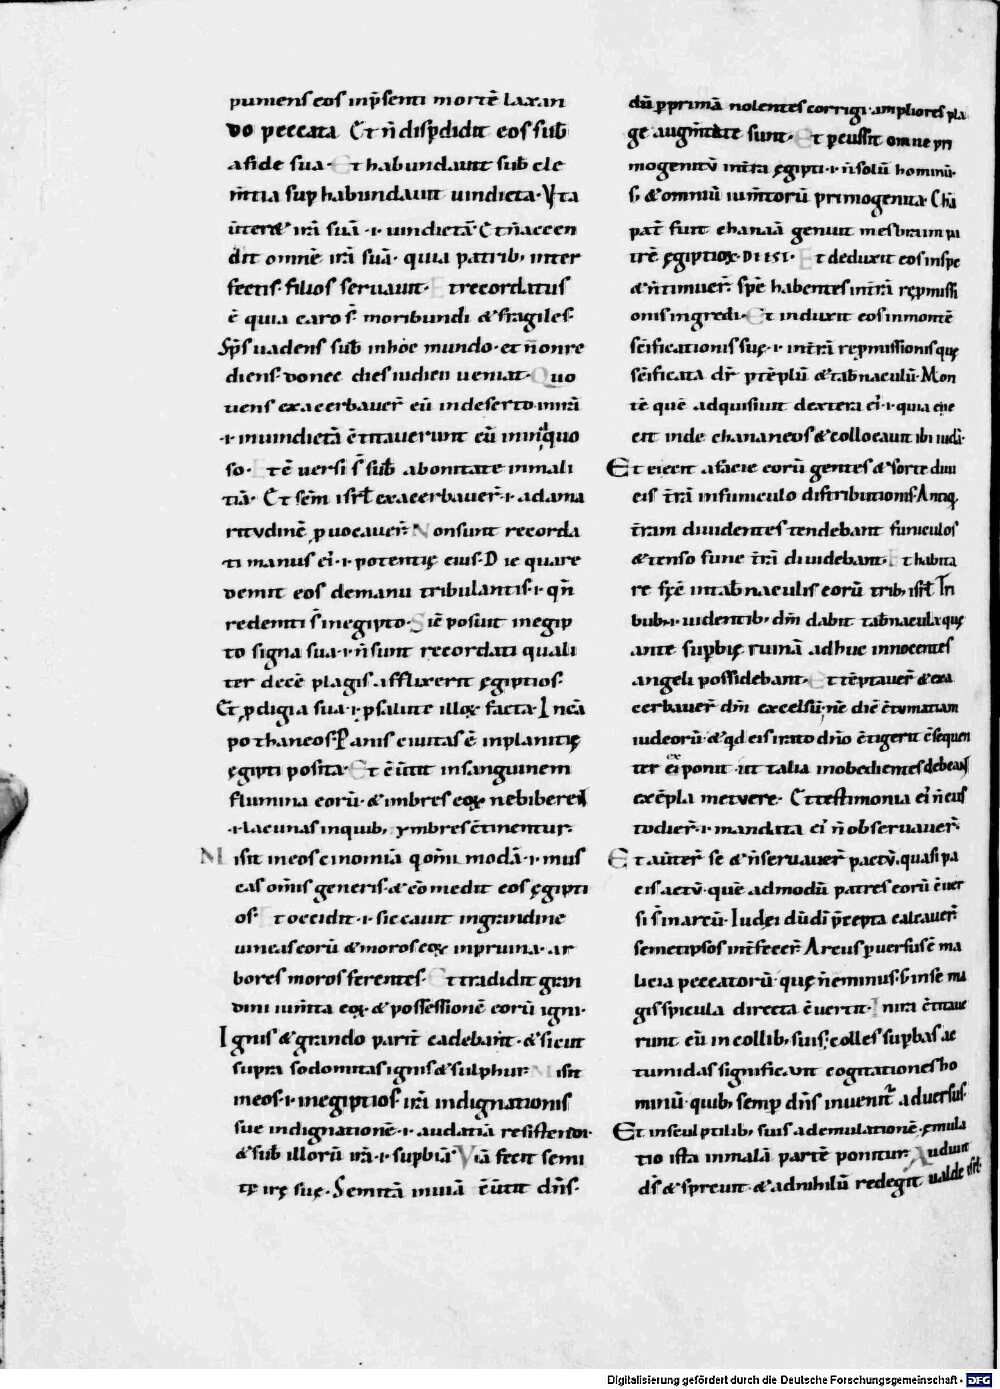 puniens eos inp̄senti mortē laxan
do peccata Et n̄ disp̱didit eos sub̄
a fide sua· Et habundauit sub̄ cle
m̄tia sup habundauit uindicta· Vt a
ūteret irā suā ·i· uindictā Et n̄ accen
dit omnē irā suā· quia patrib; inter
fectis· filios seruauit· Et recordatus
ē quia caro s̄· moribundi & fragiles·
Sp̄s uadens sub̄ inhoc mundo· et n̄ onre
diens· donec dies iudicii ueniat· Quo
tiens exacerbauer̄ eū indeserto· inirā
·i· inuindictā c̄titauerunt eū ininaquo
so· Et c̄uersi s̄ sub̄ abonitate inmali
tiā· Et sc̄m isrl̄ exacerbauer̄ ·i· ad ama
ritudinē ꝓuocauer̄· Non sunt recorda
ti manus ei᾽ ·i· potentię eius· Die quare
demit eos demanu tribulantis ·i· qn̄
redemti s̄ inegipto· Sic̄ posuit inegip
to signa sua ·i· n̄ sunt recordati quali
ter decē plagis afflixerit ęgiptios·
Et ꝓdigia sua ·i· ꝓ salute illoꝝ facta· In cā
po thaneos· Panis ciuitas ē inplanitię
ęgipti posita· Et c̄uertit insanguinem
flumina eorū· & imbres eoꝝ nebiberent
·i· lacunas inquib; ymbres c̄tinentur·
Misit ineos cinomiā qom̄i modā ·i· mus
cas om̄is generis· & comedit eos ęgipti
os· Et occidit ·i· siccauit ingrandine
uineas eorū & moros eoꝝ inpruina· ar
bores moros ferentes· Et tradidit gran
dini ium̄ta eoꝝ· & possessionē eorū igni·
Ignis & grando parit̄ cadebant· & sicut
supra sodomitas ignis & sulphur· Misit
ineos ·i· inegiptios· irā indignationis
sue indignationē ·i· audatiā resistendi·
& sub̄ illorū irā ·i· supbiā· Viā fecit semi
tę irę suę· Semitā inuiā c̄uertit dn̄s·
dū ꝑ primā nolentes corrigi· ampliores pla
ge augm̄tate sunt· Et percussit omne pri
mogenitū int̄ra ęgipti ·i· n̄ solū hominū·
s; & omniū ium̄torū primogenita· Chā
pat̄ fuit chanaā genuit mesbraim pi
trē ęgiptioꝝ· Et deduxit eos inspe
& n̄ timuer̄· spē habentes int̄rā rep̱missi
onis ingredi· Et induxit eos inmontē
sc̄ificationis suę ·i· int̄rā rep̱missionis quę
sc̄ificata dr̄ ꝓ tēplū & tab̄naculū· Mon
tē quē adquisiuit dextera ei᾽ ·i· quia eie
cit inde chananeos & collocauit ibi iudā·
Et eiecit a facie eorū gentes & sorte diui
eis t̄rā infuniculo distributionis· Antiq·
t̄ram diuidentes tendebant funiculos
& tenso fune t̄rā diuidebant· Et habita
re fęc̄ intab̄naculis eorū trib; isrl̄ In
bub;·i· uidentib; dm̄ dabit tab̄nacula quę
ante supbię ruinā adhuc innocentes
angeli possidebant· Et tēptauer̄ & exa
cerbauer̄ dm̄ excelsū· nē diē c̄tumatiam
iudeorū· & qd eis irato dn̄o c̄tigerit c̄sequen
ter ei exponit· ut talia inobedientes debeant
exēpla metuere· Et testimonia ei᾽ n̄ cus
todier̄· ·i· mandata ei᾽ n̄ obseruauer̄·
Et auter̄ se & n̄ seruauer̄ pactū, quasi pa
cis actū· quē admodū patres eorū c̄uer
si s̄ inarcū· Iudei dū dī p̄cepta calcauer̄
semetipsos int̄fecer̄· Arcus peruersus ē ma
licia peccatorū· quę n̄ eminus· s; inse ma
gis spicula directa c̄uertit· In ira c̄titaue
runt eū in collib; suis; colles supbas ac
tumidas significant cogitationes ho
minū· quib; semp dn̄s inuenit᾽ aduersus·
Et insculptilib; suis ademulationē· ęmula
tio ista inmalā partē ponitur· Audiuit
ds̄ & spreuit· & adnihilū redegit ualde isrl̄·
Digitalisierung gefördert durch die Deutsche Forschungsgemeinschaft - DFG